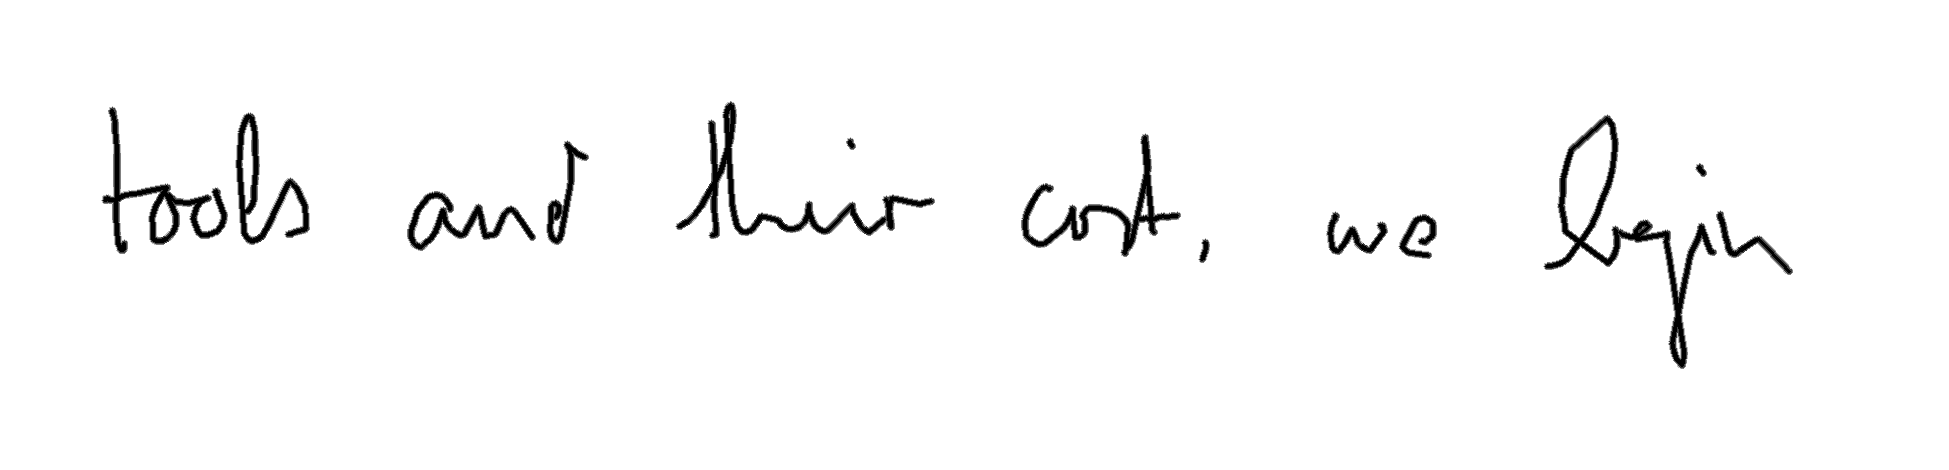 tools and their cost, we begin